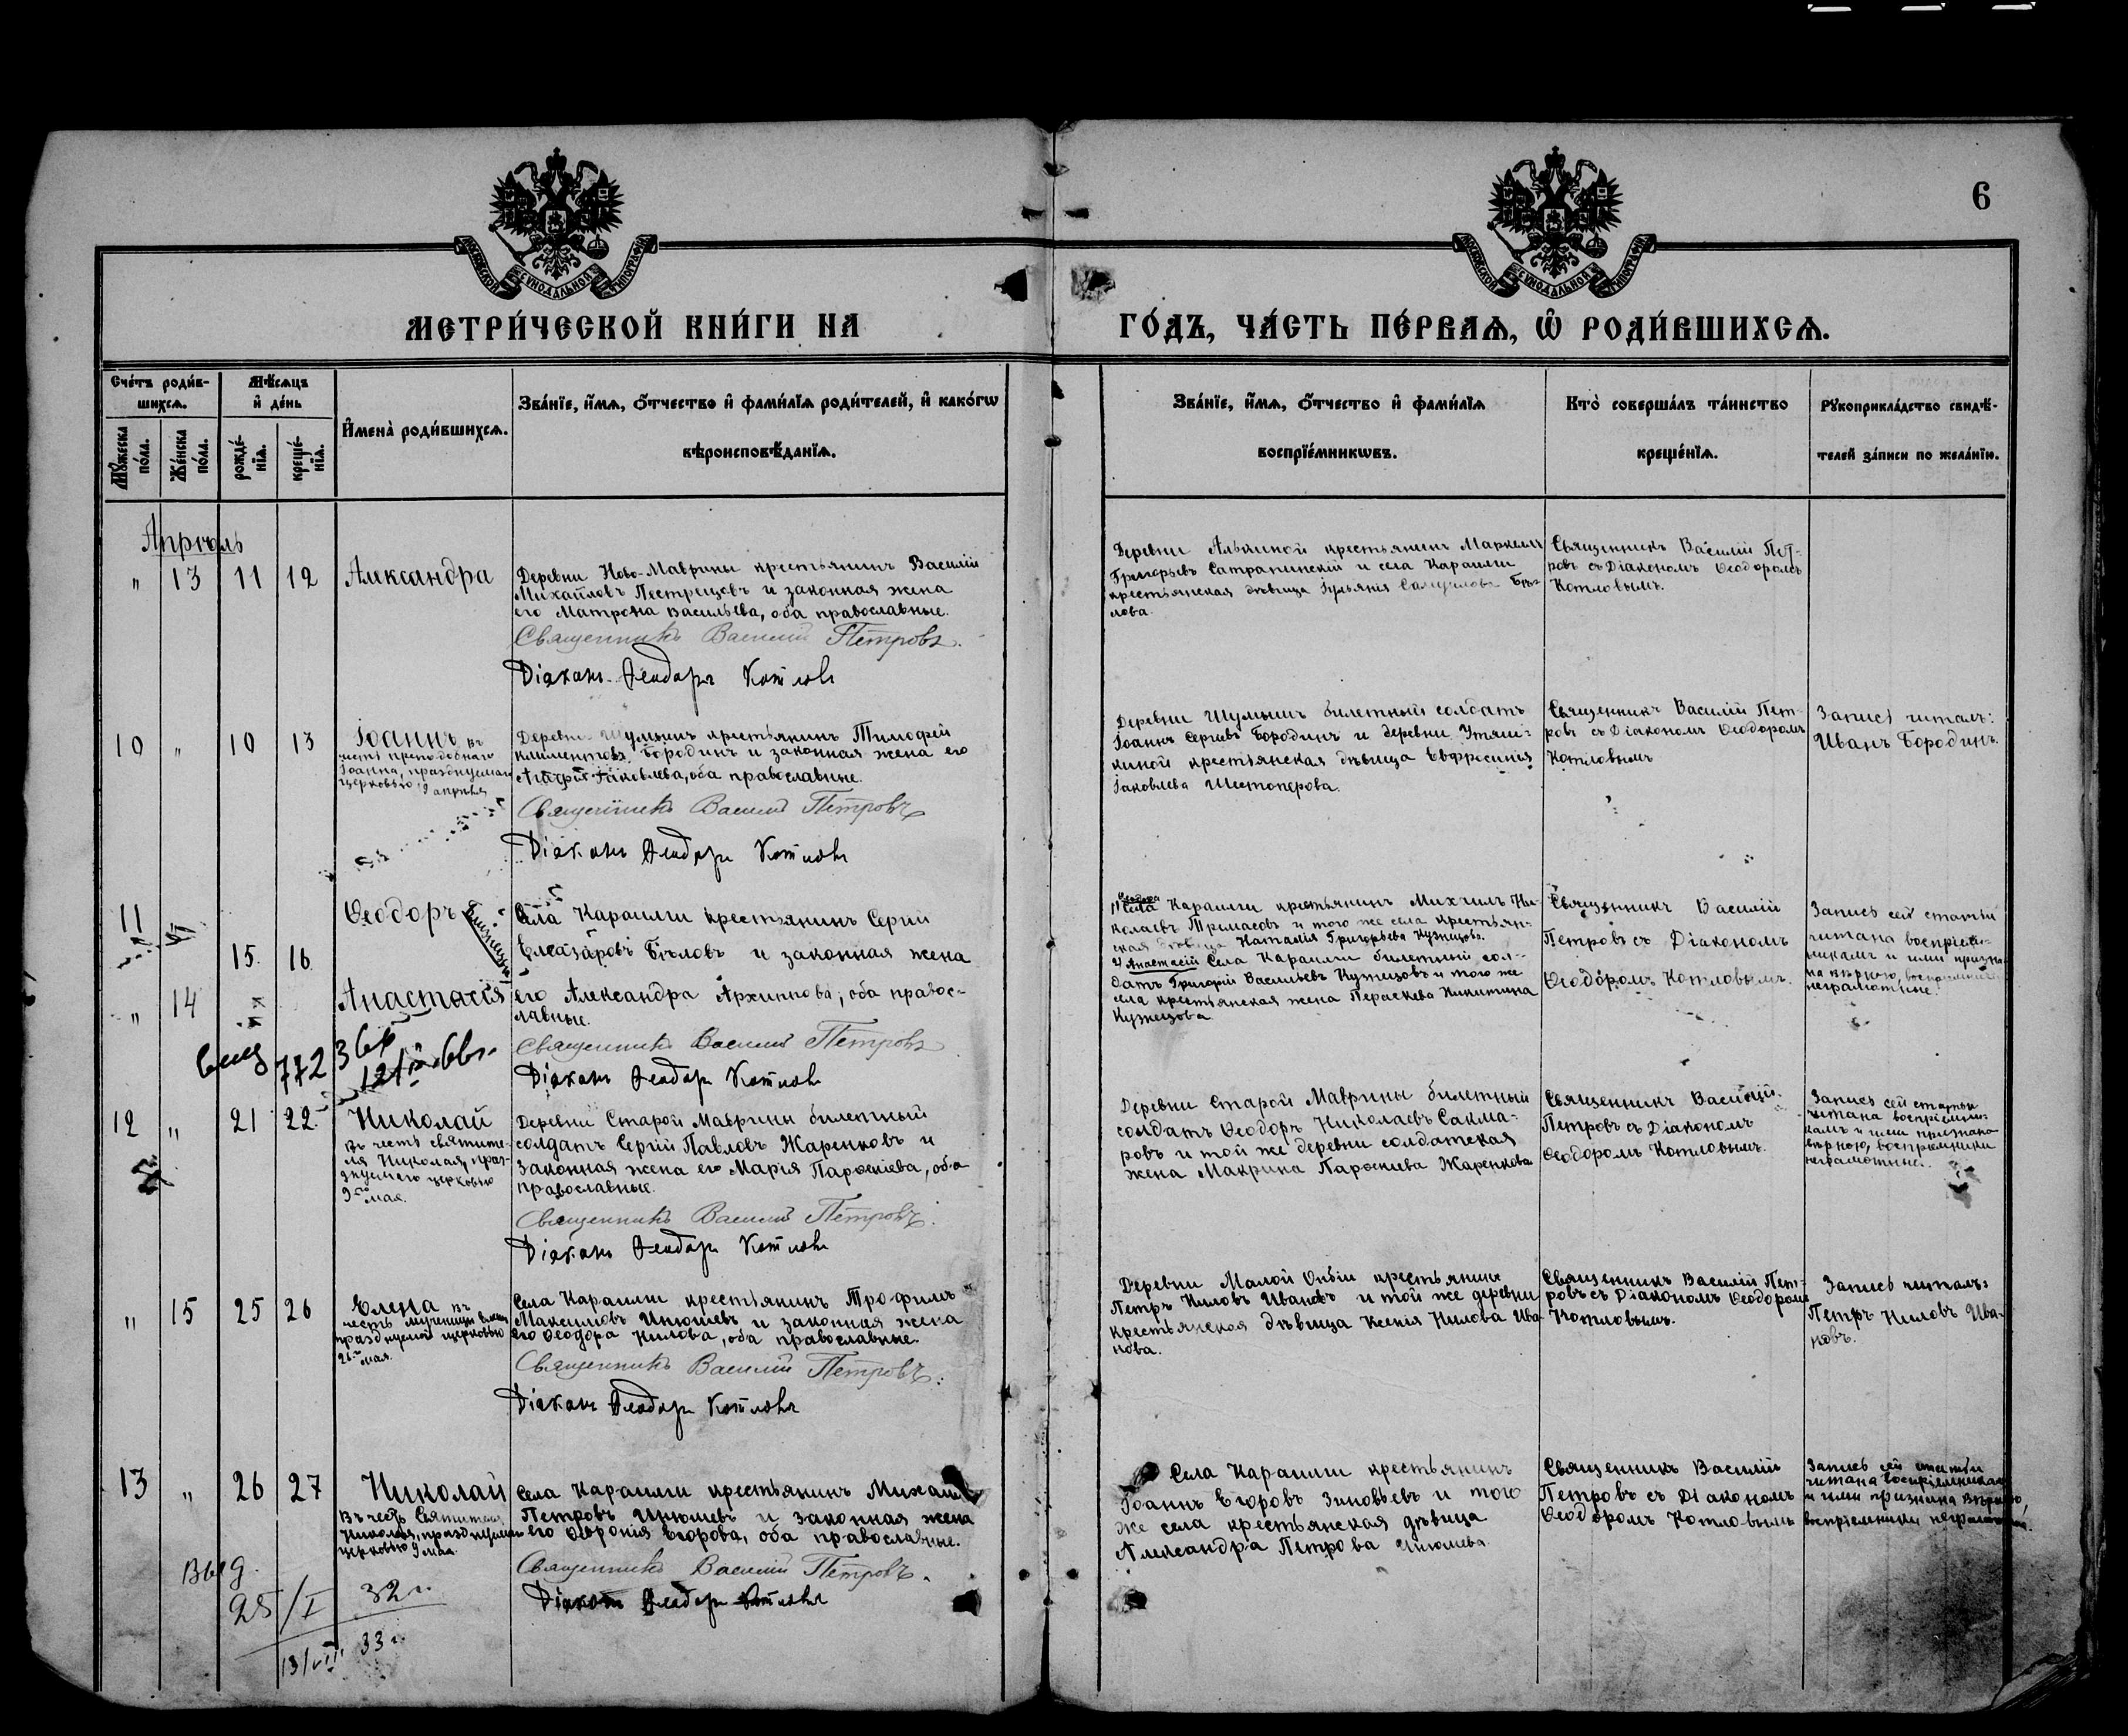 6
МОСКОВСКОЙ СѴНОДАЛЬНОЙ ТИПОГРАФІИ
МОСКОВСКОЙ СѴНОДАЛЬНОЙ ТИПОГРАФІИ
МЕТРИ́ЧЕСКОЙ КНИ́ГИ НА ГО́ДЪ, ЧА́СТЬ ПЕ́РВАѦ, Ѽ РОДИ́ВШИХСѦ.
Сче́тъ роди́в-
шихсѧ.
Мꙋ́жеска по́ла.
Же́нска по́ла.
Мѣ́сѧцъ
и҆ де́нь
рожде́-
нїѧ.
креще́-
нїѧ.
И҆мена̀ роди́вшихсѧ.
Зва́нїе, и҆́мѧ, ѻ҆́тчество и҆ фами́лїѧ роди́телей, и҆ како́гѡ
вѣроисповѣ́данїѧ.
Зва́нїе, и҆́мѧ, ѻ҆́тчество и҆ фами́лїѧ
воспрїе́мникѡвъ.
Кто̀ соверша́лъ та́инство
креще́нїѧ.
Рꙋкоприкла́дство свидѣ́-
телей за́писи по жела́нїю.
Апрѣль
" 13 11 12 Александра
Деревни Ново-Маврины крестьянинъ Василій
Михайловъ Пестрецовъ и законная жена
его Матрона Васильева, оба православные.
Священникъ Василій Петровъ.
Діаконъ Ѳеодоръ Котловъ
Деревни Алькиной крестьянинъ Маркеллъ
Григорьевъ Сатрапинскій и села Карашли
крестьянская дѣвица Іуліанія Самуилова Бѣ-
лова.
Священникъ Василій Пет-
ровъ съ Діакономъ Ѳеодоромъ
Котловымъ.
10 " 10 13 Іоаннъ въ
честь преподобнаго
Іоанна, празднуемаго
церковью 9 апрѣля
Деревни Шумышъ крестьянинъ Тимофей
Климентовъ Бородинъ и законная жена его
Іаковлева, оба православные.
Священникъ Василій Петровъ
Діаконъ Ѳеодоръ Котловъ
Деревни Шумышъ билетный солдатъ
Іоаннъ Сергѣевъ Бородинъ и деревни Утяш-
киной крестьянская дѣвица Евфросинія
Іаковлева Шестоперова.
Священникъ Василій Пет-
ровъ съ Діакономъ Ѳеодоромъ
Котловымъ
Запись читалъ:
Иванъ Бородинъ.
11 Ѳеодоръ
близнецы
15 16
" 14 Анастасія
Села Карашли крестьянинъ Сергій
Елеазаровъ Бѣловъ и законная жена
его Александра Архиппова, оба правос-
лавные.
Священникъ Василій Петровъ
Діаконъ Ѳеодоръ Котловъ
1) Ѳеодора Села Карашли крестьянинъ Михаилъ Ни-
колаевъ Тремасовъ и того же села крестьян-
ская дѣвица Наталія Григорьева Кузнецова.
2) Анастасіи Села Карашли билетный сол-
датъ Григорій Васильевъ Кузнецовъ и того же
села крестьянская жена Параскева Никитина
Кузнецова.
Священникъ Василій
Петровъ съ Діакономъ
Ѳеодоромъ Котловымъ.
Запись сей статьи
читана воспріем-
никамъ и ими призна-
на вѣрною, воспріемники
неграмотные.
772
12 " 21 22 Николай
въ честь святите-
ля Николая, праз-
днуемаго церковью
9го мая.
Деревни Старой Маврины билетный
солдатъ Сергій Павловъ Жаренковъ и
законная жена его Марія Пароскіева, оба
православные.
Священникъ Василій Петровъ.
Діаконъ Ѳеодоръ Котловъ
Деревни Старой Маврины билетный
солдатъ Ѳеодоръ Николаевъ Сакма-
ровъ и той же деревни солдатская
жена Макрина Пароскіева Жаренкова
Священникъ Василій
Петровъ съ Діакономъ
Ѳеодоромъ Котловымъ.
Запись сей статьи
читана воспріемни-
камъ и ими признана
вѣрною, воспріемники
неграмотные.
" 15 25 26 Елена въ
честь мученицы Елены
празднуемой церковью
26го мая.
Села Карашли крестьянинъ Трофимъ
Максимовъ Инюшевъ и законная жена
его Ѳеодора Нилова, оба православные.
Священникъ Василій Петровъ.
Діаконъ Ѳеодоръ Котловъ
Деревни Малой Онбіи крестьянинъ
Петръ Ниловъ Ивановъ и той же деревни
крестьянская дѣвица Ксенія Нилова Ива-
нова.
Священникъ Василій Пет-
ровъ съ Діакономъ Ѳеодоромъ
Котловымъ.
Запись читалъ:
Петръ Ниловъ Ива-
новъ.
13 " 26 27 Николай
въ честь Святителя
Николая, празднуемаго
церковью 9 мая.
Села Карашли крестьянинъ Михаилъ
Петровъ Инюшевъ и законная жена
его Ѳевронія Егорова, оба православные.
Священникъ Василій Петровъ.
Діаконъ Ѳеодоръ Котловъ
Села Карашли крестьянинъ
Іоаннъ Егоровъ Зиновьевъ и того
же села крестьянская дѣвица
Александра Петрова Инюшева.
Священникъ Василій
Петровъ съ Діакономъ
Ѳеодоромъ Котловымъ
Запись сей статьи
читана воспріемникамъ
и ими признана вѣрною,
воспріемники неграмотные.
Выд.
25/I 32 г.
13/VIII 33 г.